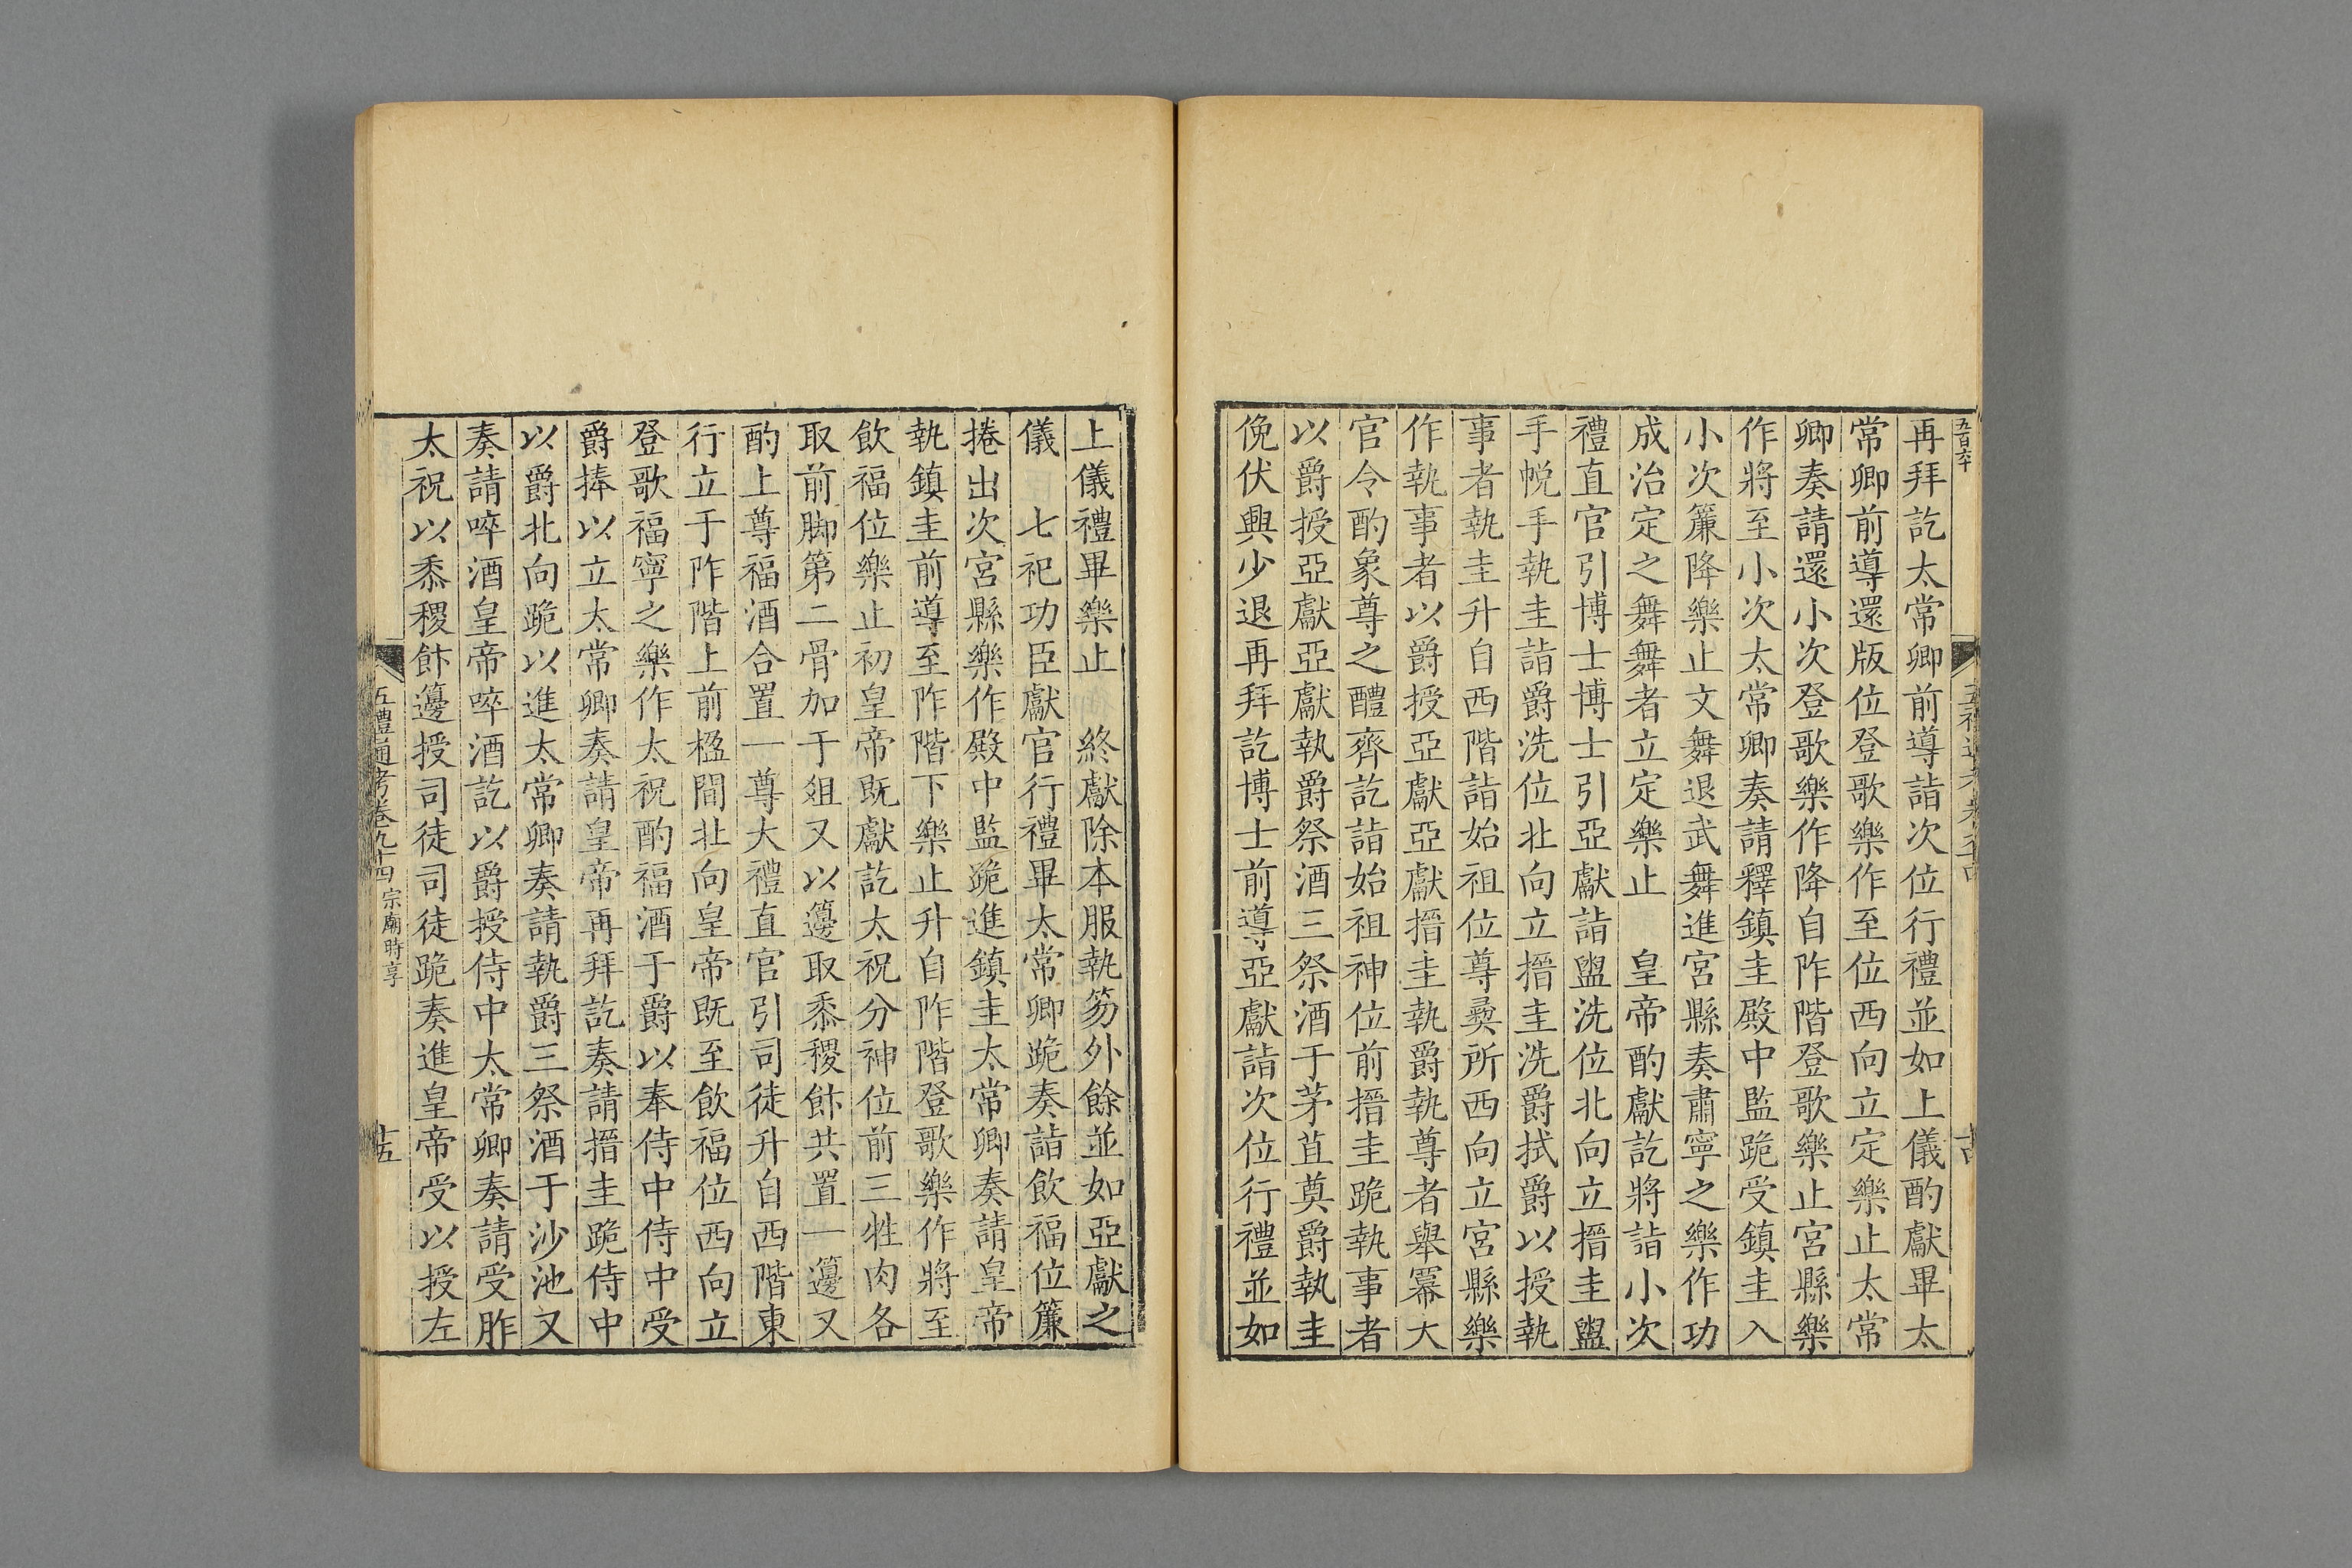 五百六十
再拜訖太常卿前導詣次位行禮並如上儀酌獻畢太
常卿前導還版位登歌樂作至位西向立定樂止太常
卿奏請還小次登歌樂作降自阼階登歌樂止宮縣樂
作將至小次太常卿奏請釋鎮圭殿中監跪受鎮圭入
小次簾降樂止文舞退武舞進宮縣奏肅寧之樂作功
成治定之舞舞者立定樂止　皇帝酌獻訖將詣小次
禮直官引博士博士引亞獻詣盥洗位北向立搢圭盥
手帨手執圭詣爵洗位北向立搢圭洗爵拭爵以授執
事者執圭升自西階詣始祖位尊彝所西向立宮縣樂
作執事者以爵授亞獻亞獻搢圭執爵執尊者舉冪大
官令酌象尊之醴齊訖詣始祖神位前搢圭跪執事者
以爵授亞獻亞獻執爵祭酒三祭酒于茅苴奠爵執圭
俛伏興少退再拜訖博士前導亞獻詣次位行禮並如
上儀禮畢樂止　終獻除本服執笏外餘並如亞獻之
儀　七祀功臣獻官行禮畢太常卿跪奏詣飲福位簾
捲出次宮縣樂作殿中監跪進鎮圭太常卿奏請皇帝
執鎮圭前導至阼階下樂止升自阼階登歌樂作將至
飲福位樂止初皇帝既獻訖太祝分神位前三牲肉各
取前脚第二骨加于俎又以籩取黍稷餠共置一籩又
酌上尊福酒合置一尊大禮直官引司徒升自西階東
行立于阼階上前楹間北向皇帝既至飲福位西向立
登歌福寧之樂作太祝酌福酒于爵以奉侍中侍中受
爵捧以立太常卿奏請皇帝再拜訖奏請搢圭跪侍中
以爵北向跪以進太常卿奏請執爵三祭酒于沙池又
奏請啐酒皇帝啐酒訖以爵授侍中太常卿奏請受胙
太祝以黍稷餠籩授司徒司徒跪奏進皇帝受以授左
五禮通考卷九十四 宗廟時享
十五